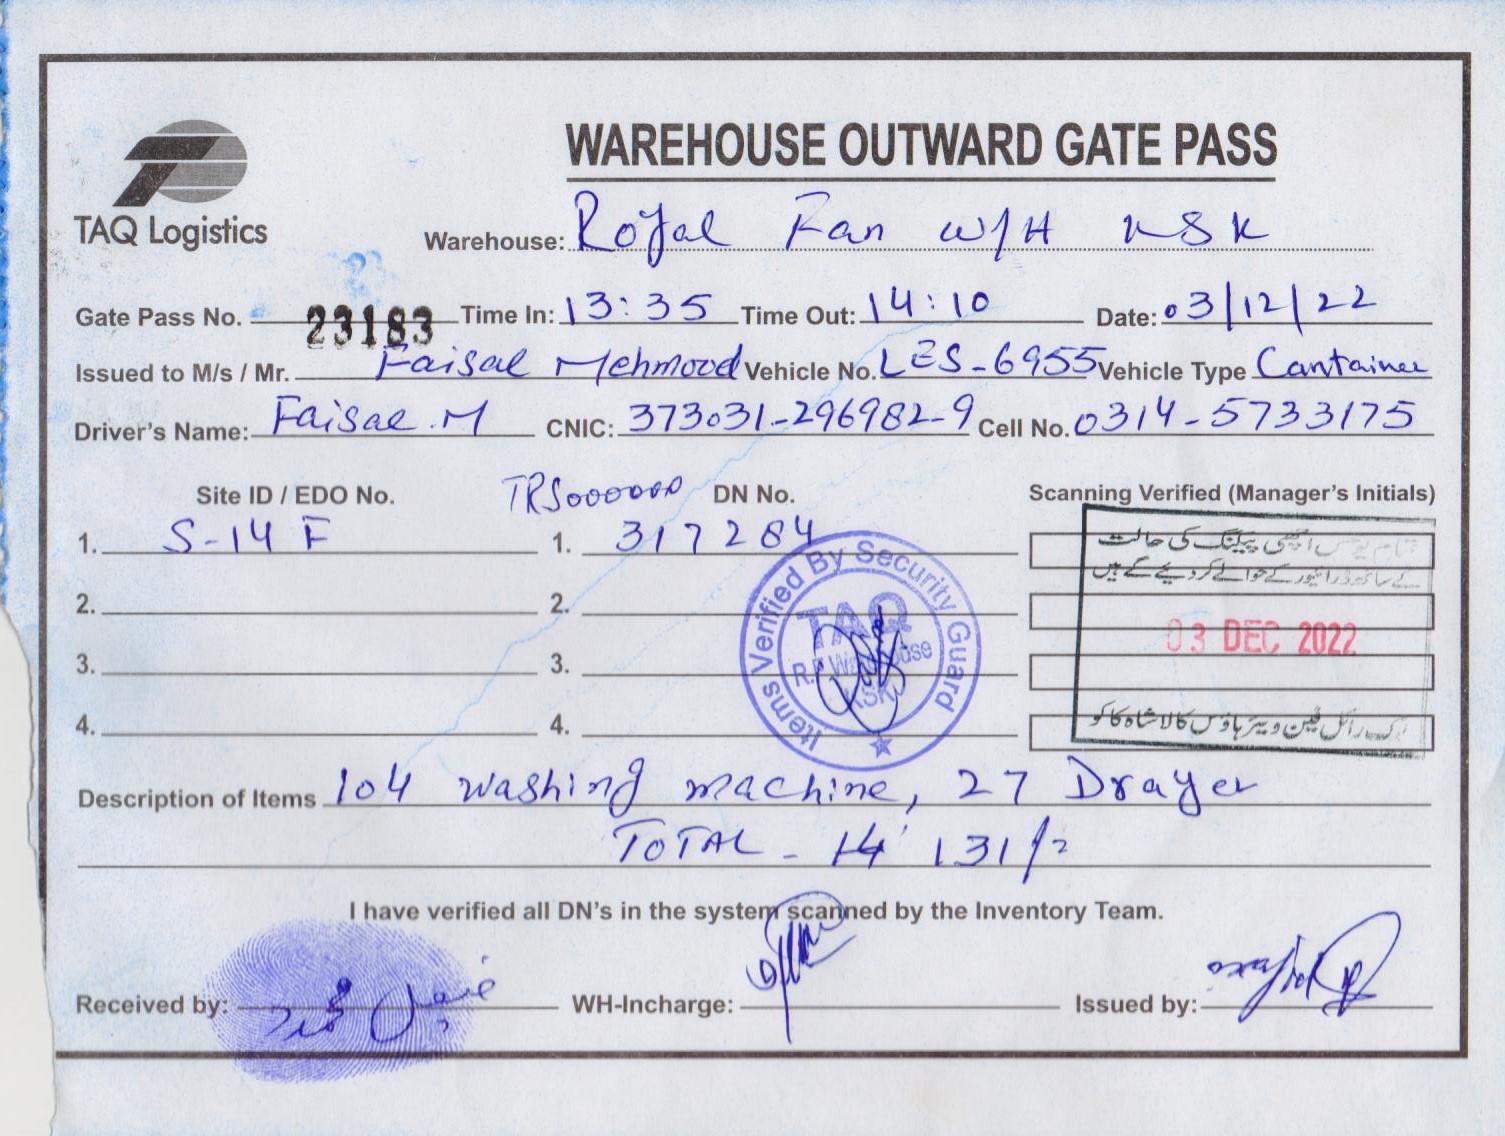 WAREHOUSE OUTWARD GATE PASS
TAQ Logistics
Warehouse: Royal Fan W/H KSK
Gate Pass No. 23183 Time In: 13:35 Time Out: 14:10 Date: 03/12/22
Issued to M/s / Mr. Faisal Mehmood Vehicle No. LES-6955 Vehicle Type Cantainer
Driver's Name: Faisal M CNIC: 373031-296982-9 Cell No. 0314-5733175
Site ID / EDO No. TRS000000 DN No. Scanning Verified (Manager's Initials)
1. S-14 F 1. 317284
2. 2.
3. 3.
4. 4.
Items Verified By Security Guard
TAQ
R.F Warehouse
KSK
اچھی پیکنگ کی حالت
کے ساتھ ڈرائیور کے حوالے کر دیئے گئے ہیں
03 DEC 2022
رائل فین ویئر ہاؤس کالا شاہ کاکو
Description of Items 104 washing machine, 27 Drayer
TOTAL - 131/-
I have verified all DN's in the system scanned by the Inventory Team.
Received by: فیصل محمود WH-Incharge: Issued by: